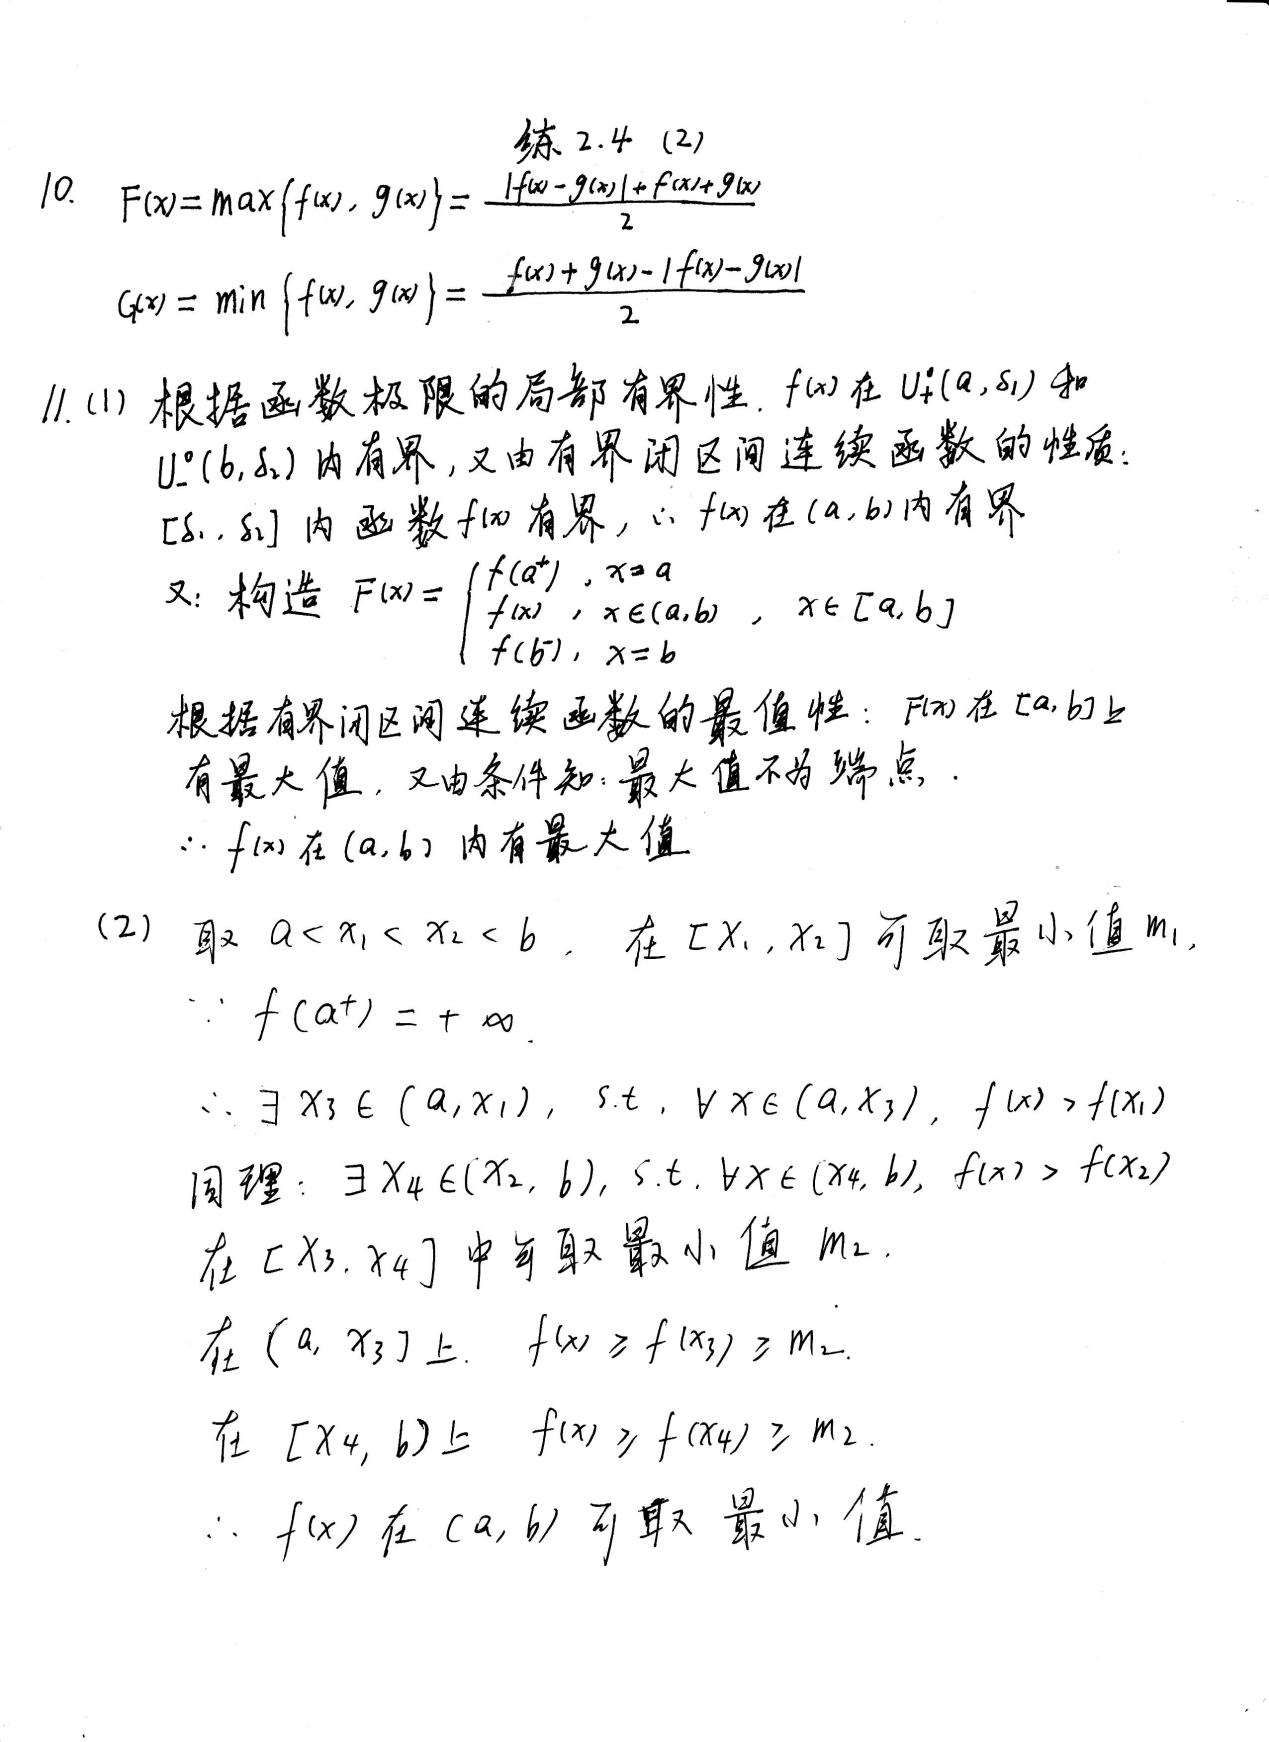 练 2.4 (2)
10. F(x)=max{f(x), g(x)}= (|f(x)-g(x)|+f(x)+g(x))/2
G(x)= min{f(x), g(x)}= (f(x)+g(x)-|f(x)-g(x)|)/2
11.(1) 根据函数极限的局部有界性. f(x)在 U₊°(a,δ₁) 和
U₋°(b,δ₂)内有界,又由有界闭区间连续函数的性质:
[δ₁,δ₂]内函数f(x)有界,∴f(x)在(a,b)内有界
又:构造 F(x)= { f(a⁺), x=a
f(x), x∈(a,b) , x∈[a,b]
f(b⁻), x=b
根据有界闭区间连续函数的最值性: F(x)在[a,b]上
有最大值,又由条件知:最大值不为端点.
∴f(x)在(a,b)内有最大值
(2) 取 a<x₁<x₂<b. 在[x₁,x₂]可取最小值m₁,
∵ f(a⁺)=+∞.
∴∃x₃∈(a,x₁), s.t. ∀x∈(a,x₃), f(x)>f(x₁)
同理:∃x₄∈(x₂,b), s.t. ∀x∈(x₄,b), f(x)>f(x₂)
在[x₃,x₄]中可取最小值m₂.
在(a,x₃]上. f(x)≥f(x₃)≥m₂.
在[x₄,b)上 f(x)≥f(x₄)≥m₂.
∴ f(x)在(a,b)可取最小值.